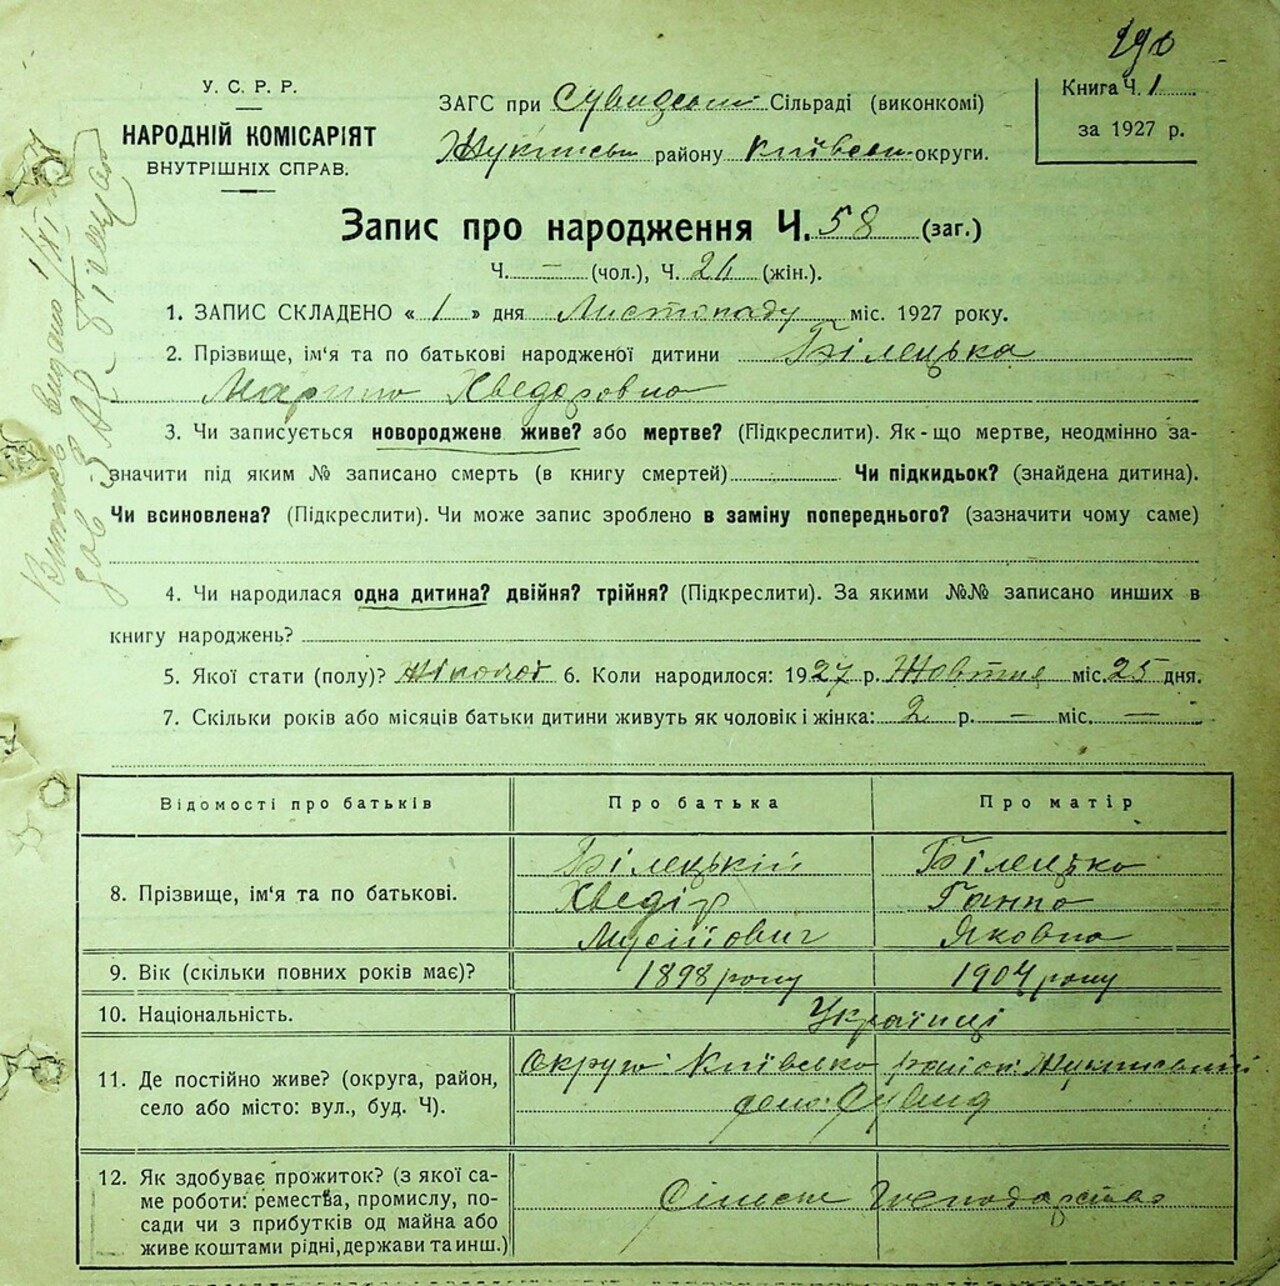 290
У. С. Р. Р.
НАРОДНІЙ КОМІСАРІЯТ
ВНУТРІШНІХ СПРАВ.
ЗАГС при Сувидській Сільраді (виконкомі)
Жукинськ району Київськ округи.
Книга Ч. 1
за 1927 р.
Запис про народження Ч. 58 (заг.)
Ч. — (чол.), Ч. 26 (жін.).
1. ЗАПИС СКЛАДЕНО « 1 » дня Листопаду міс. 1927 року.
2. Прізвище, ім'я та по батькові народженої дитини Білецька
Марина Хведоровна
3. Чи записується новороджене живе? або мертве? (Підкреслити). Як-що мертве, неодмінно за-
значити під яким № записано смерть (в книгу смертей) Чи підкидьок? (знайдена дитина).
Чи всиновлена? (Підкреслити). Чи може запис зроблено в заміну попереднього? (зазначити чому саме)
4. Чи народилася одна дитина? двійня? трійня? (Підкреслити). За якими №№ записано инших в
книгу народжень?
5. Якої стати (полу)? жіночої 6. Коли народилося: 1927 р. Жовтня міс. 25 дня.
7. Скільки років або місяців батьки дитини живуть як чоловік і жінка: 2 р. — міс. —
Відомості про батьків Про батька Про матір
8. Прізвище, ім'я та по батькові. Білецький Хведір Мусійович Білецька Ганна Яковна
9. Вік (скільки повних років має)? 1898 року 1904 року
10. Національність. Українці
11. Де постійно живе? (округа, район, село або місто: вул., буд. Ч). Округа Київська район: Жукинський село: Сувид
12. Як здобуває прожиток? (з якої са-
ме роботи: ремества, промислу, по-
сади чи з прибутків од майна або
живе коштами рідні, держави та инш.)
Сільське Господарство